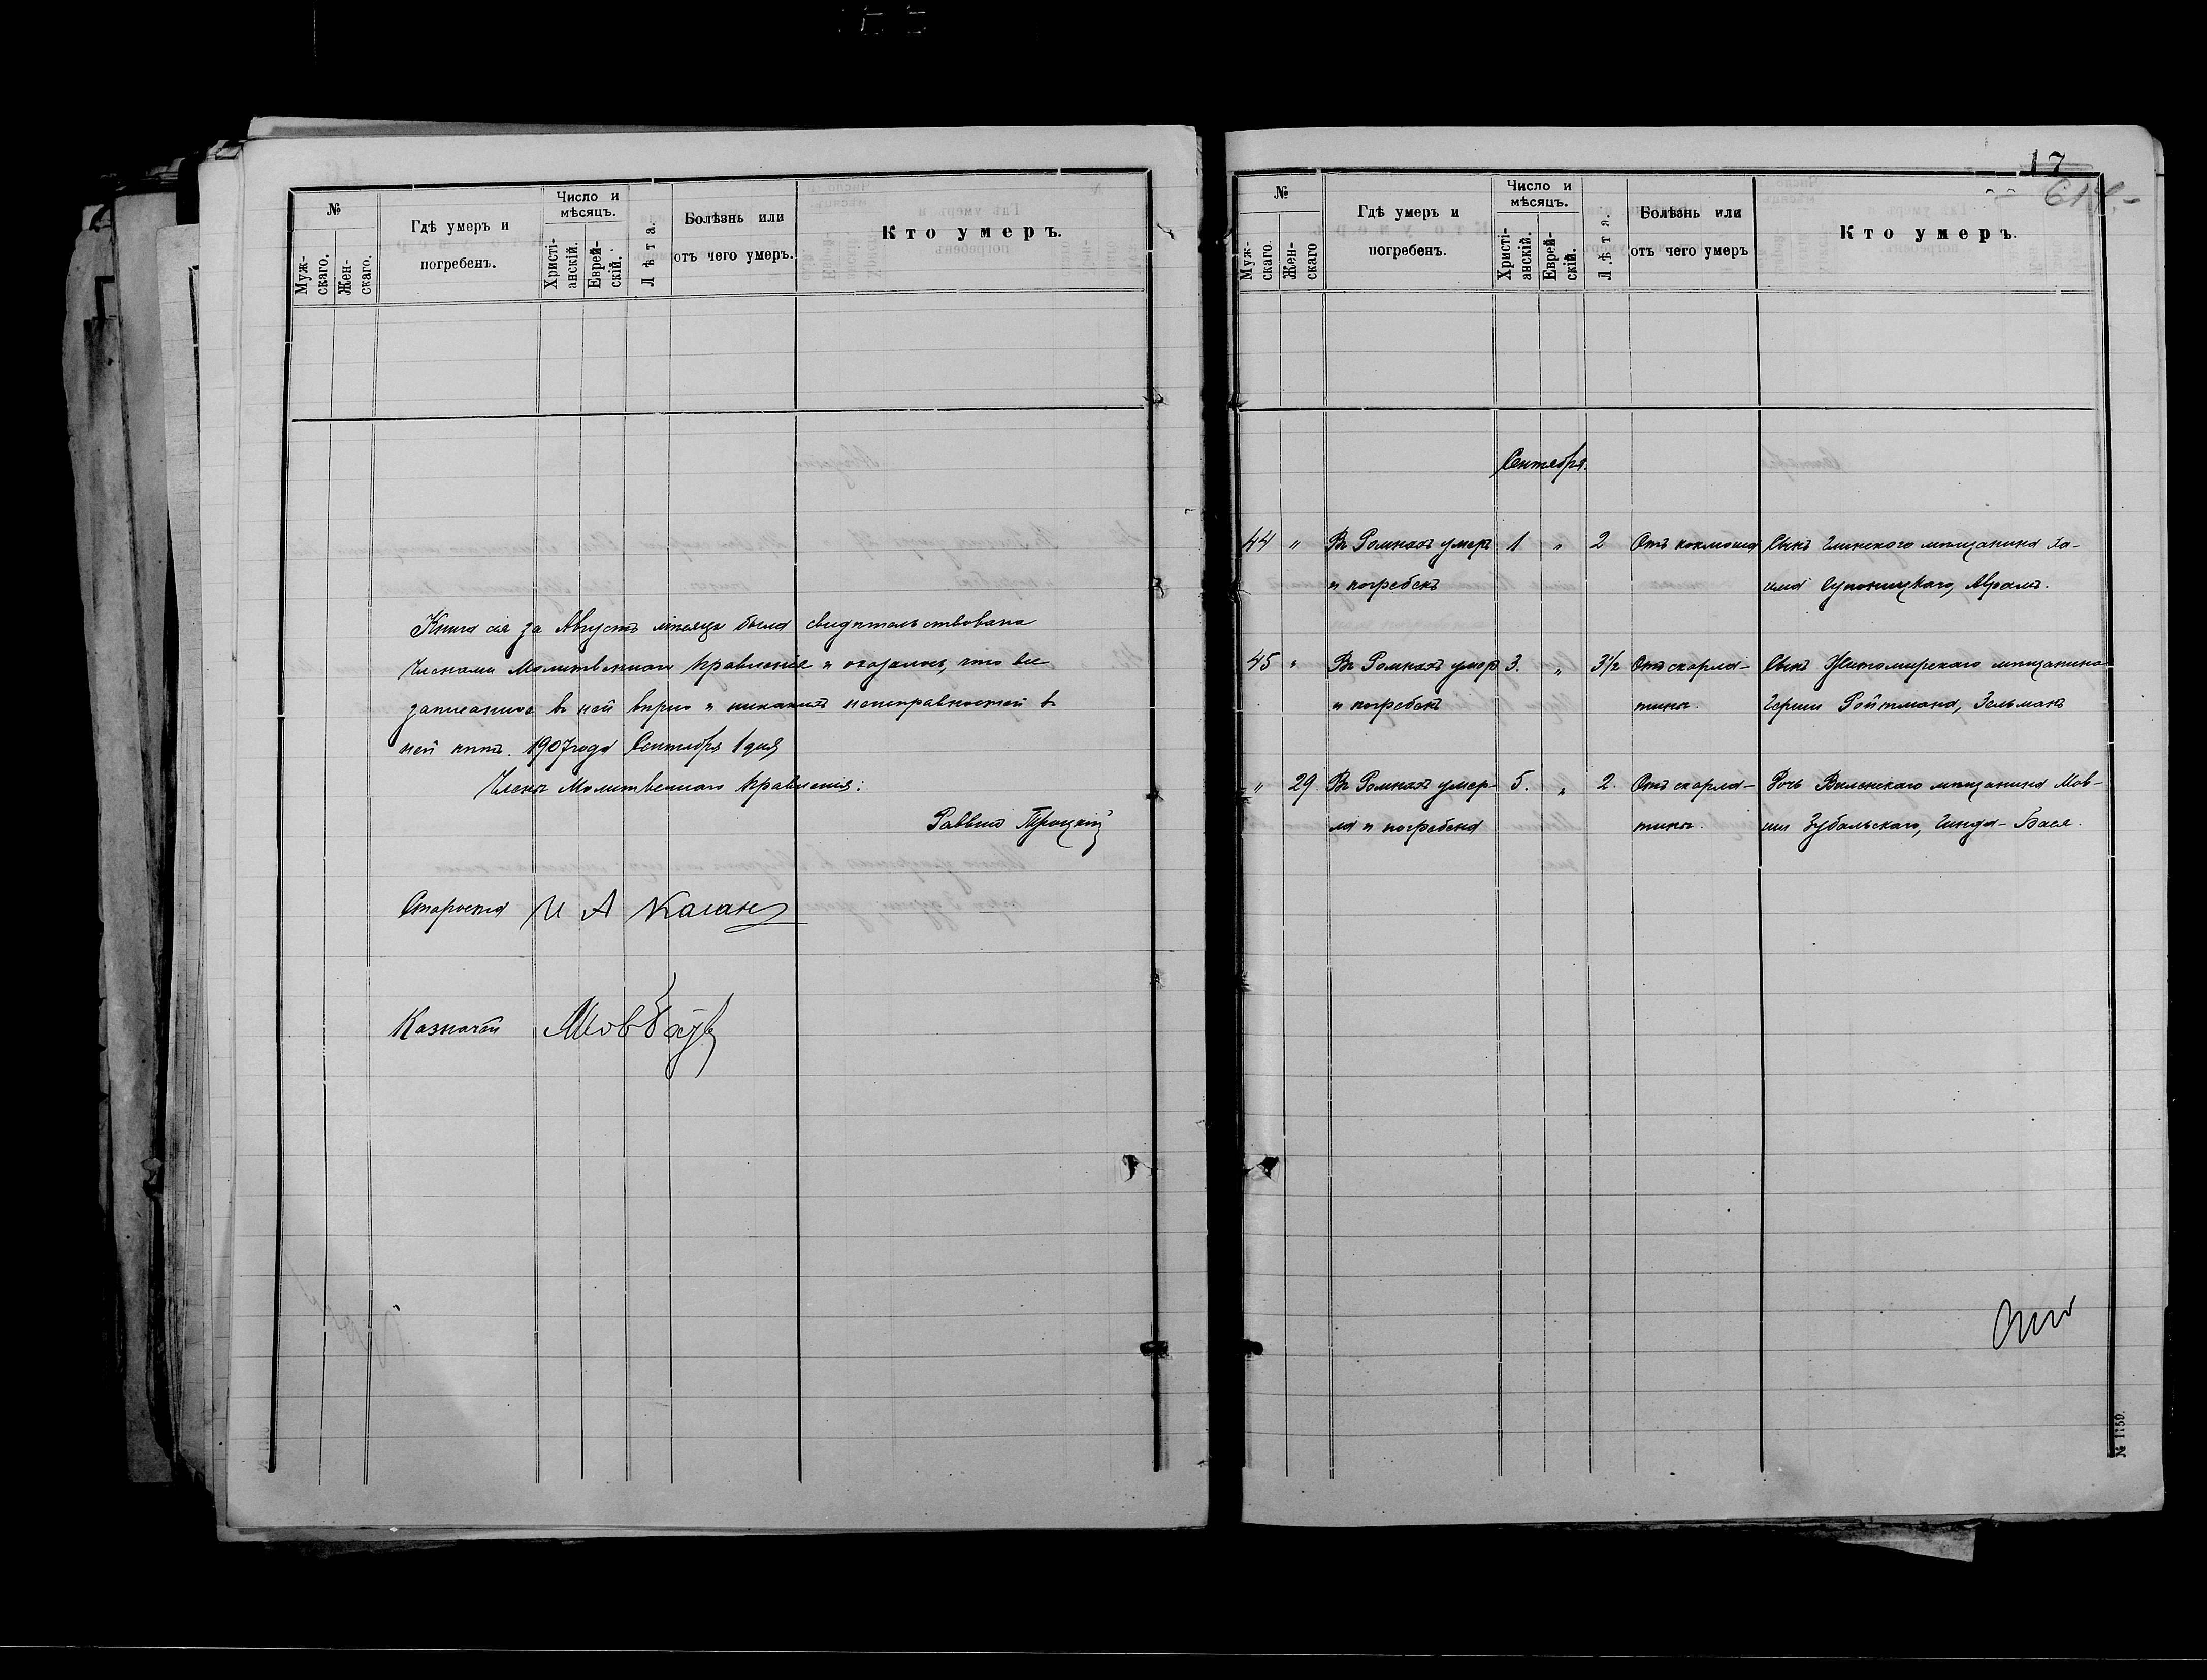 №
Муж-
скаго.
Жен-
скаго.
Гдѣ умеръ и
погребенъ.
Число и
мѣсяцъ.
Христі-
анскій.
Еврей-
скій.
Лѣта.
Болѣзнь или
отъ чего умеръ.
Кто умеръ.
Книга сія за Августъ мѣсяцъ была свидѣтельствована
Членами Молитвеннаго Правленія и оказалось, что все
записанное въ ней вѣрно и никакихъ неисправностей въ
ней нѣтъ. 1907 года Сентября 1 дня
Члены Молитвеннаго Правленія:
Раввинъ Троцкій
Староста И А Каган
Казначей
17
614
№
Муж-
скаго.
Жен-
скаго
Гдѣ умеръ и
погребенъ.
Число и
мѣсяцъ.
Христі-
анскій.
Еврей-
скій.
Лѣта.
Болѣзнь или
отъ чего умеръ
Кто умеръ.
Сентябрь.
44 " Въ Ромнахъ умеръ 1 " 2 Отъ коклюша Сынъ Глинскаго мѣщанина Ха-
и погребенъ има Супоницкаго, Абрамъ.
45 " Въ Ромнахъ умеръ 3. " 3½ Отъ скарла- Сынъ Житомирскаго мѣщанина
и погребенъ тины. Герши Ройтмана, Зельманъ
" 29 Въ Ромнахъ умер- 5. " 2. Отъ скарла- Дочь Виленскаго мѣщанина Мов-
ла и погребена тины. ши Зубальскаго, Гинда-Бася.
№ 1159.